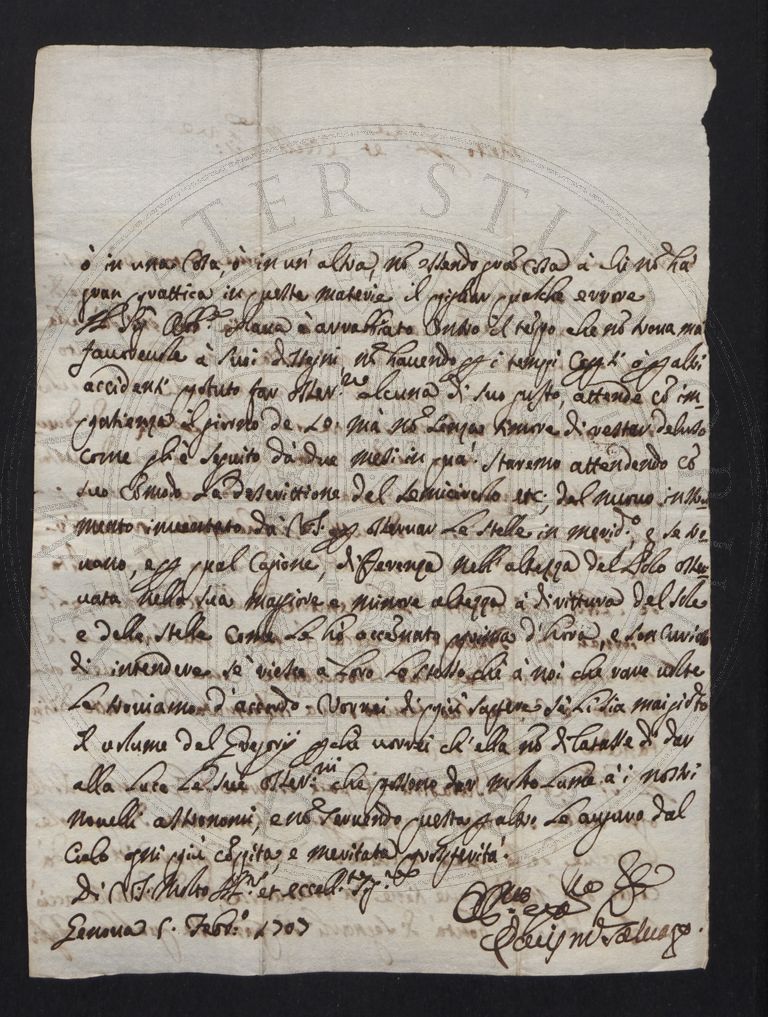 ò in una cosa, ò in un' altra, nō essendo grā cosa à chi nō hà
gran prattica in queste materie il pigliar qualche errore
Il Sig.r Abb.e è arrabbiato contro il tēpo che nō trova mai
favorevole à suoi disegni nō havendo p i tempi ò p altri
accidenti potuto far osser.ne alcuna di suo gusto, attende cō im-
patienza il giorno de 20. mà nō senza timore di restar deluso
come gli è seguito dà due mesi in quà. Staremo attendendo cō
suo cōmodo la descrittione del semicircolo etc. del nuovo instru-
mento inventato dà V.S. p osservar le stelle in merid.o, e se tro-
vano, e p qual cagione, differenza nell' altezza del Polo osser-
vata nella sua maggiore e minore altezza à dirittura del Sole
e delle stelle come le hò accēnato prima d'hora, e son curioso
di intendere se riesce à loro lo stesso che à noi che rare volte
le troviamo d'accordo. Vorrei di più sapere se li sia mai giōto
il volume del Gregorij pche vorrei ch' ella nō dilatasse di dar
alla luce le sue osser.ni che possono dar molto lume à i nostri
novelli astronomi, e nō servendo questa p altro le auguro dal
Cielo ogni più cōpita, e meritata prosperità.
Di V.S. Molto Ill.re et eccell.ma
Genova 5. Febr.o 1707
Salvago.